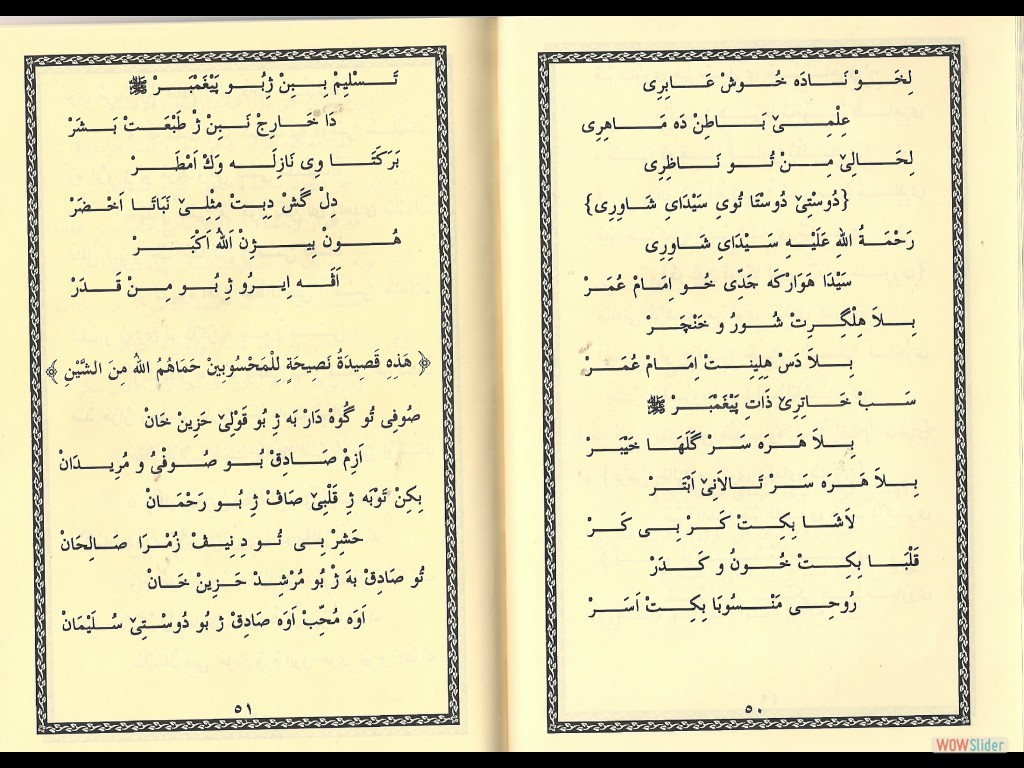 لِخَوْ نَادَه خُوشْ عَابِرِى
عِلْمِىْ بَاطِنْ دَه مَاهِرِى
لِحَالِىْ مِنْ تُو نَاظِرِى
{دُوسْتِىْ دُوسْتَا تُوىِ سَيْدَاىِ شَاوِرِى}
رَحْمَةُ اللهِ عَلَيْهِ سَيْدَاىِ شَاوِرِى
سَيْدَا هَوَارْكَه جَدِّى خُو اِمَامْ عُمَرْ
بِلاَ هِلْگِرِتْ شُورُ و خَنْجَرْ
بِلاَ دَسْ هِلِينِتْ اِمَامْ عُمَرْ
سَبْ خَاتِرِىْ ذَاتِ پَيْغَمْبَرْ ﷺ
بِلاَ هَرَه سَرْ گَلَهَا خَيْبَرْ
بِلاَ هَرَه سَرْ تَالاَنِىْ اَبْتَرْ
لاَشَا بِكِتْ كَرْ بِى كَرْ
قَلْبَا بِكِتْ خُونُ و كَدَرْ
رُوحِى مَنْسُوبَا بِكِتْ اَسَرْ
٥٠
تَسْلِيمْ بِبِنْ ژِبُو پَيْغَمْبَرْ ﷺ
دَا خَارِجْ نَبِنْ ژْ طَبْعَتْ بَشَرْ
بَرَكَتَا وِى نَازِلَه وَكْ اَمْطَرْ
دِلْ گَشْ دِبِتْ مِثْلِىْ نَبَاتَا اَخْضَرْ
هُونْ بِيژِنْ اَللهُ اَكْبَرْ
اَڤَه اِيرُو ژِ بُو مِنْ قَدَرْ
﴿ هَذِهِ قَصِيدَةُ نَصِيحَةٍ لِلْمَحْسُوبِينْ حَمَاهُمُ اللهُ مِنَ الشَّيْنِ ﴾
صُوفِى تُو گُوهْ دَارْ بَه ژِ بُو قَوْلِىْ حَزِينْ خَانْ
اَزِمْ صَادِقْ بُو صُوفْىُ و مُرِيدَانْ
بِكِنْ تَوْبَه ژِ قَلْبِىْ صَافْ ژِ بُو رَحْمَانْ
حَشِرْ بِى تُو دِنِيڤْ زُمْرَا صَالِحَانْ
تُو صَادِقْ بَه ژْ بُو مُرْشِدْ حَزِينْ خَانْ
اَوَه مُحِبْ اَوَه صَادِقْ ژِ بُو دُوسْتِىْ سُلَيْمَانْ
٥١
WOWSlider